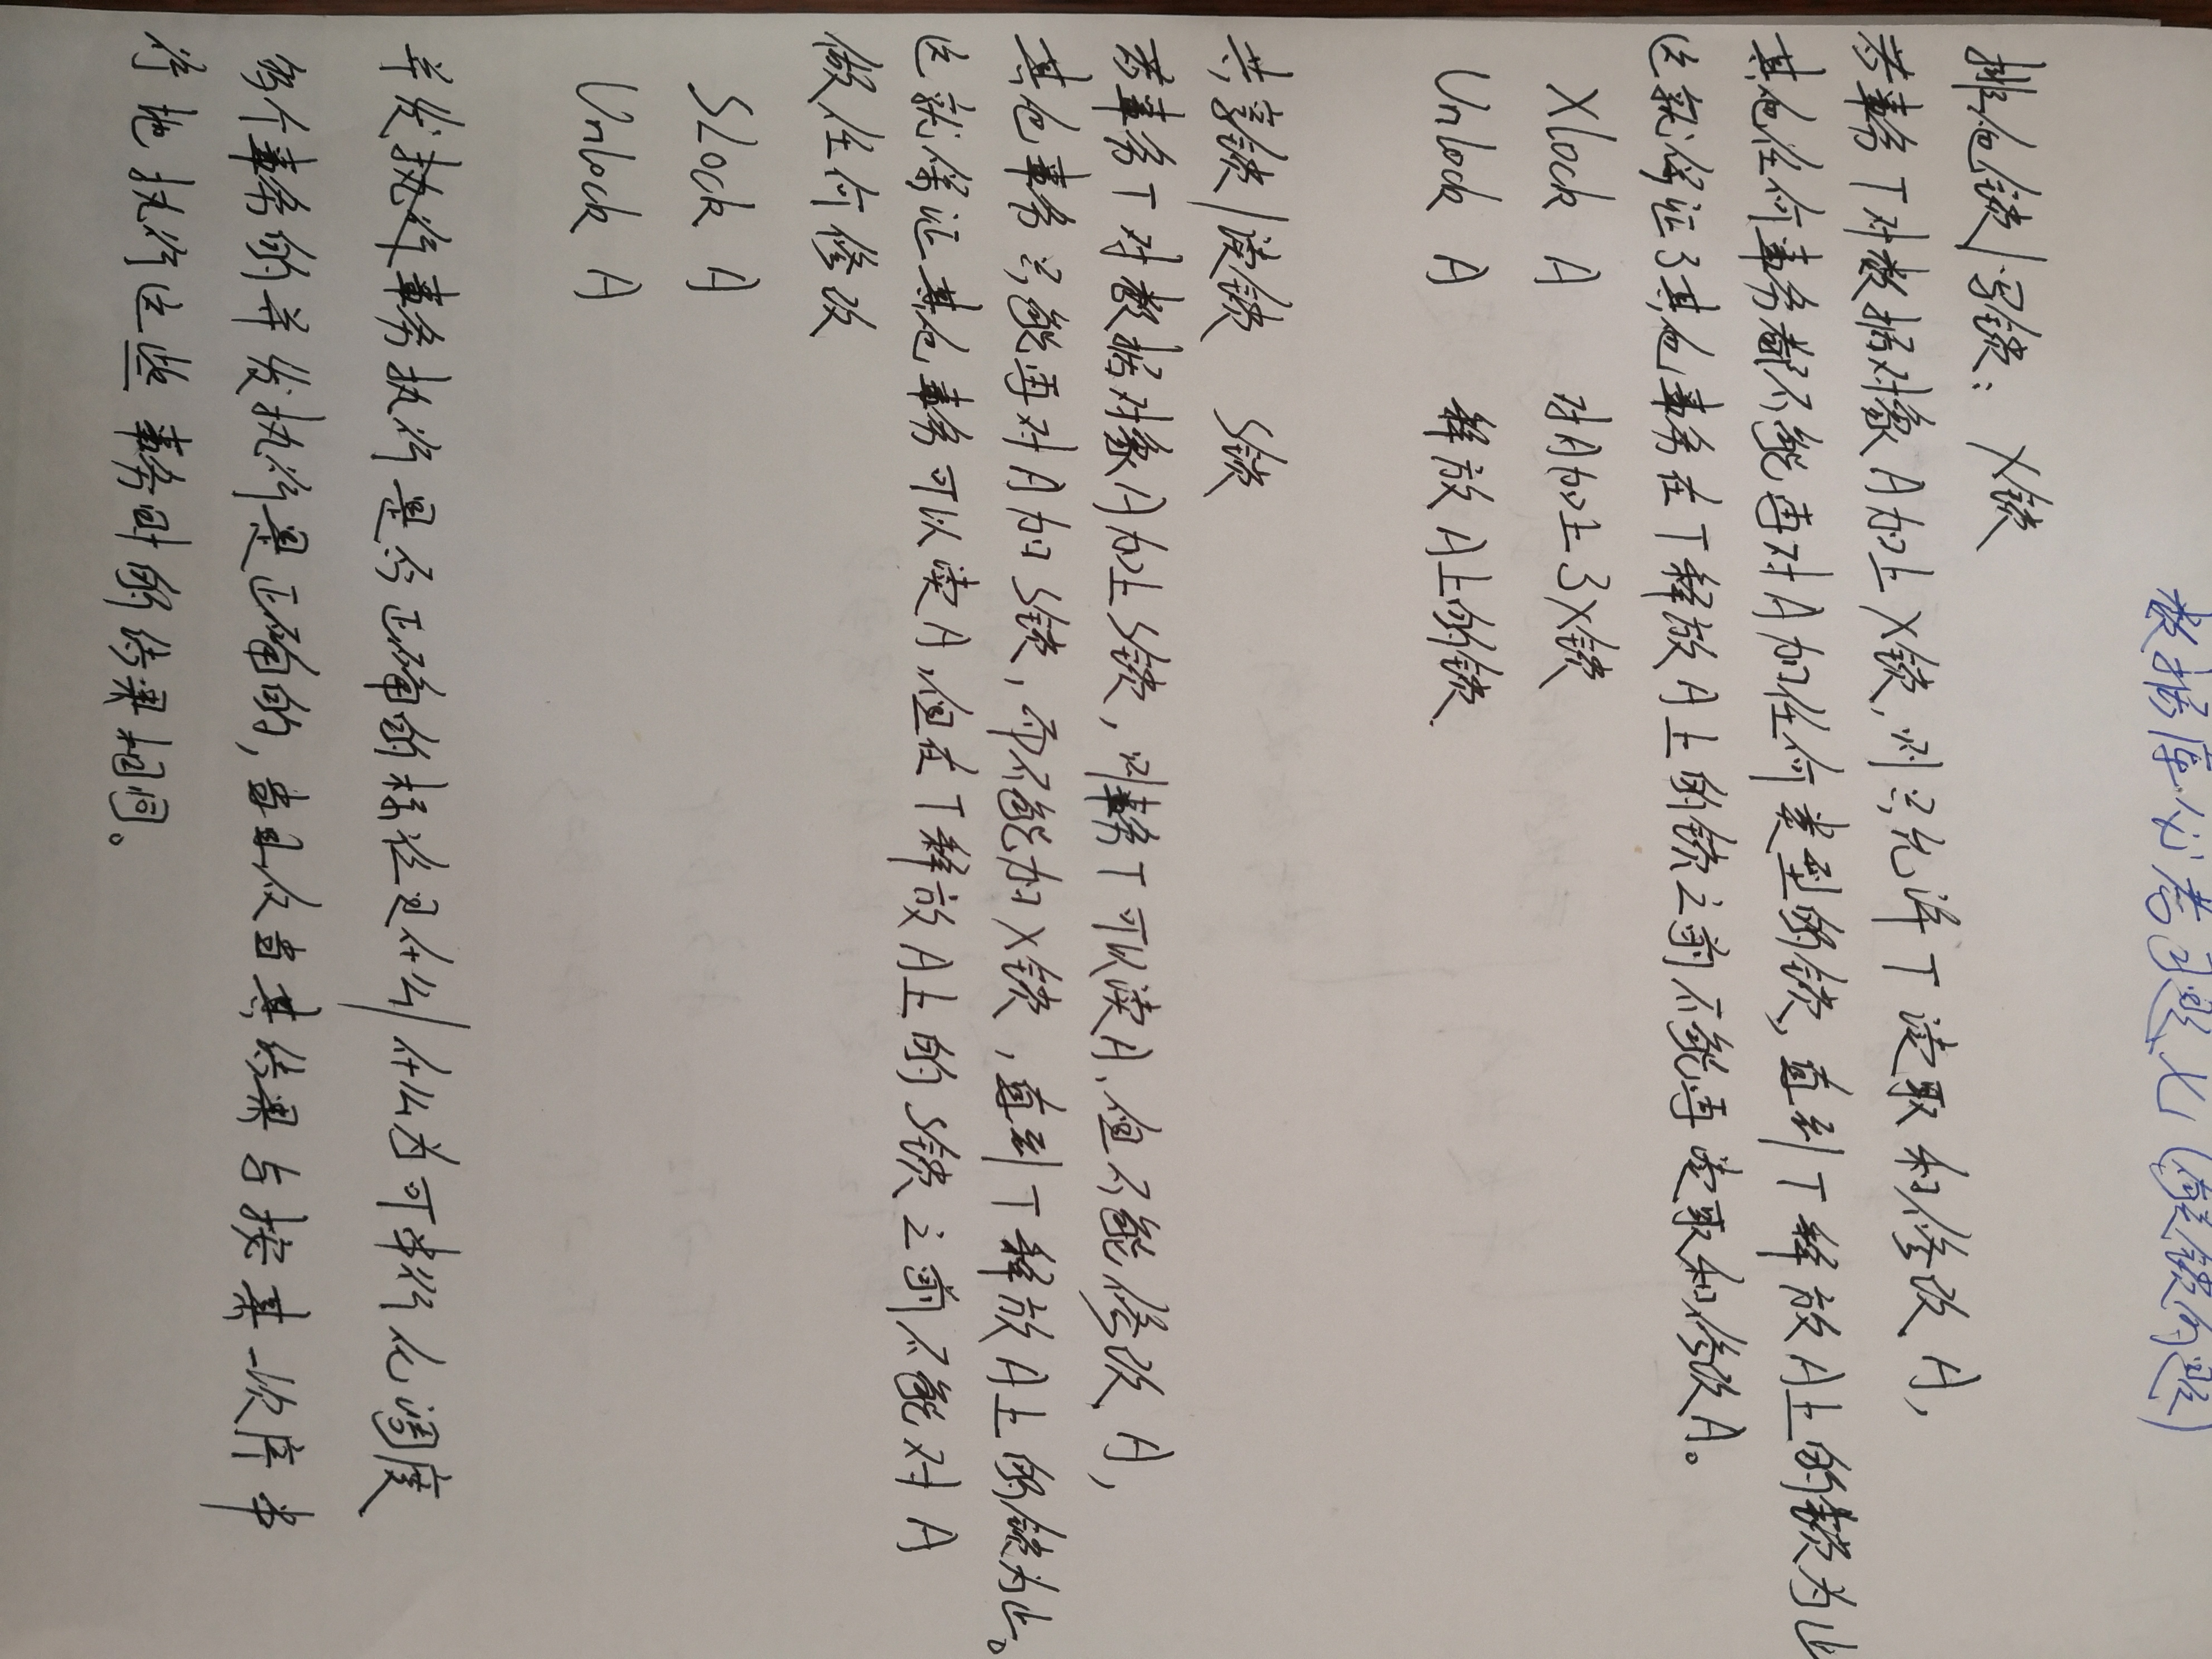 数据库必考习题七(有关锁的题)
排他锁/写锁: X锁
若事务T对数据对象A加上X锁,则只允许T读取和修改A,
其他任何事务都不能再对A加任何类型的锁,直到T释放A上的锁为止
这就保证了其他事务在T释放A上的锁之前不能再读取和修改A。
Xlock A 对A加上了X锁
Unlock A 释放A上的锁.
共享锁/读锁 S锁
若事务T对数据对象A加上S锁,则事务T可以读A,但不能修改A,
其他事务只能再对A加S锁,而不能加X锁,直到T释放A上的锁为止。
这就保证其他事务可以读A,但在T释放A上的S锁之前不能对A
做任何修改
SLock A
Unlock A
并发执行事务执行是否正确的标准是什么/什么为可串行化调度
多个事务的并发执行是正确的,当且仅当其结果与按某一次序串
行地执行这些事务时的结果相同。